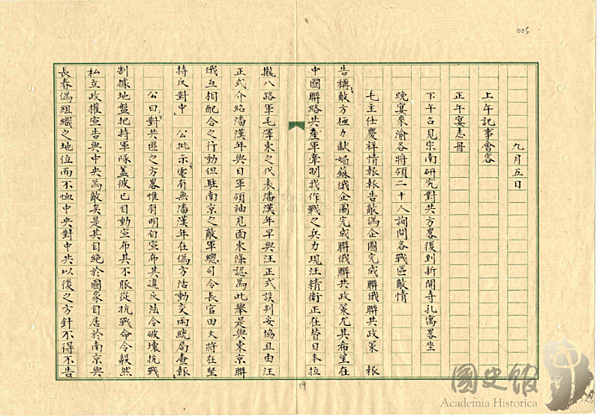 005
九月五日
上午記事會客
正午宴志舟
下午召見宗南研究對共方畧後到新開寺孔寓畧坐
晚宴來渝各將領二十人詢問各戰區敵情
毛主任慶祥情報報告敵偽企圖完成聯俄聯共政策 報
告稱敵方極力獻媚蘇俄企圖完成聯俄聯共政策尤其希望在
中國聯絡共產軍牽制我作戰之兵力現汪精衛正在替日本拉
攏八路軍毛澤東之代表潘漢年早與汪正式談判妥協且由汪
正式介紹潘漢年與日軍領袖見面東條認為此舉是與東京聯
俄互相配合之行動但駐南京之敵軍總司令長官田大將在堅
持反對中 公批示電有無潘漢年在偽方活動交兩統局查報
公曰對共匪之方畧惟有明白宣布其違反法令破壞抗戰
割據地盤把持軍隊蓋彼已自動宣布其不服從抗戰命令毅然
私立政權宣告與中央為敵矣是其自絕於國家自居於南京與
長春偽組織之地位而不恤中央對中共以後之方針不得不告
19
國史館
Academia Historica